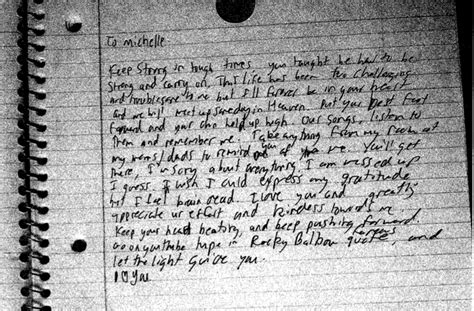 To Michelle
Keep Strong in tough times you taught me how to be
strong and carry on. This life has been too challenging
and troublesome to me but I'll forever be in your heart
and we will meet up someday in Heaven. Put your best foot
forward and your chin hold up high. Our songs, listen to
them and remember me. Take anything from my room at
my moms/dads to remind you of me. You'll get
there, I'm sorry about everything. I am messed up
I guess. I wish I could express my gratitude
but I feel brain dead. I love you and greatly
appreciate ur effort and kindness towards me
Keep your heart beating, and keep pushing forward.
Go on youtube type in Rocky Balboa quote, and
let the light guide you.
I ♡ You